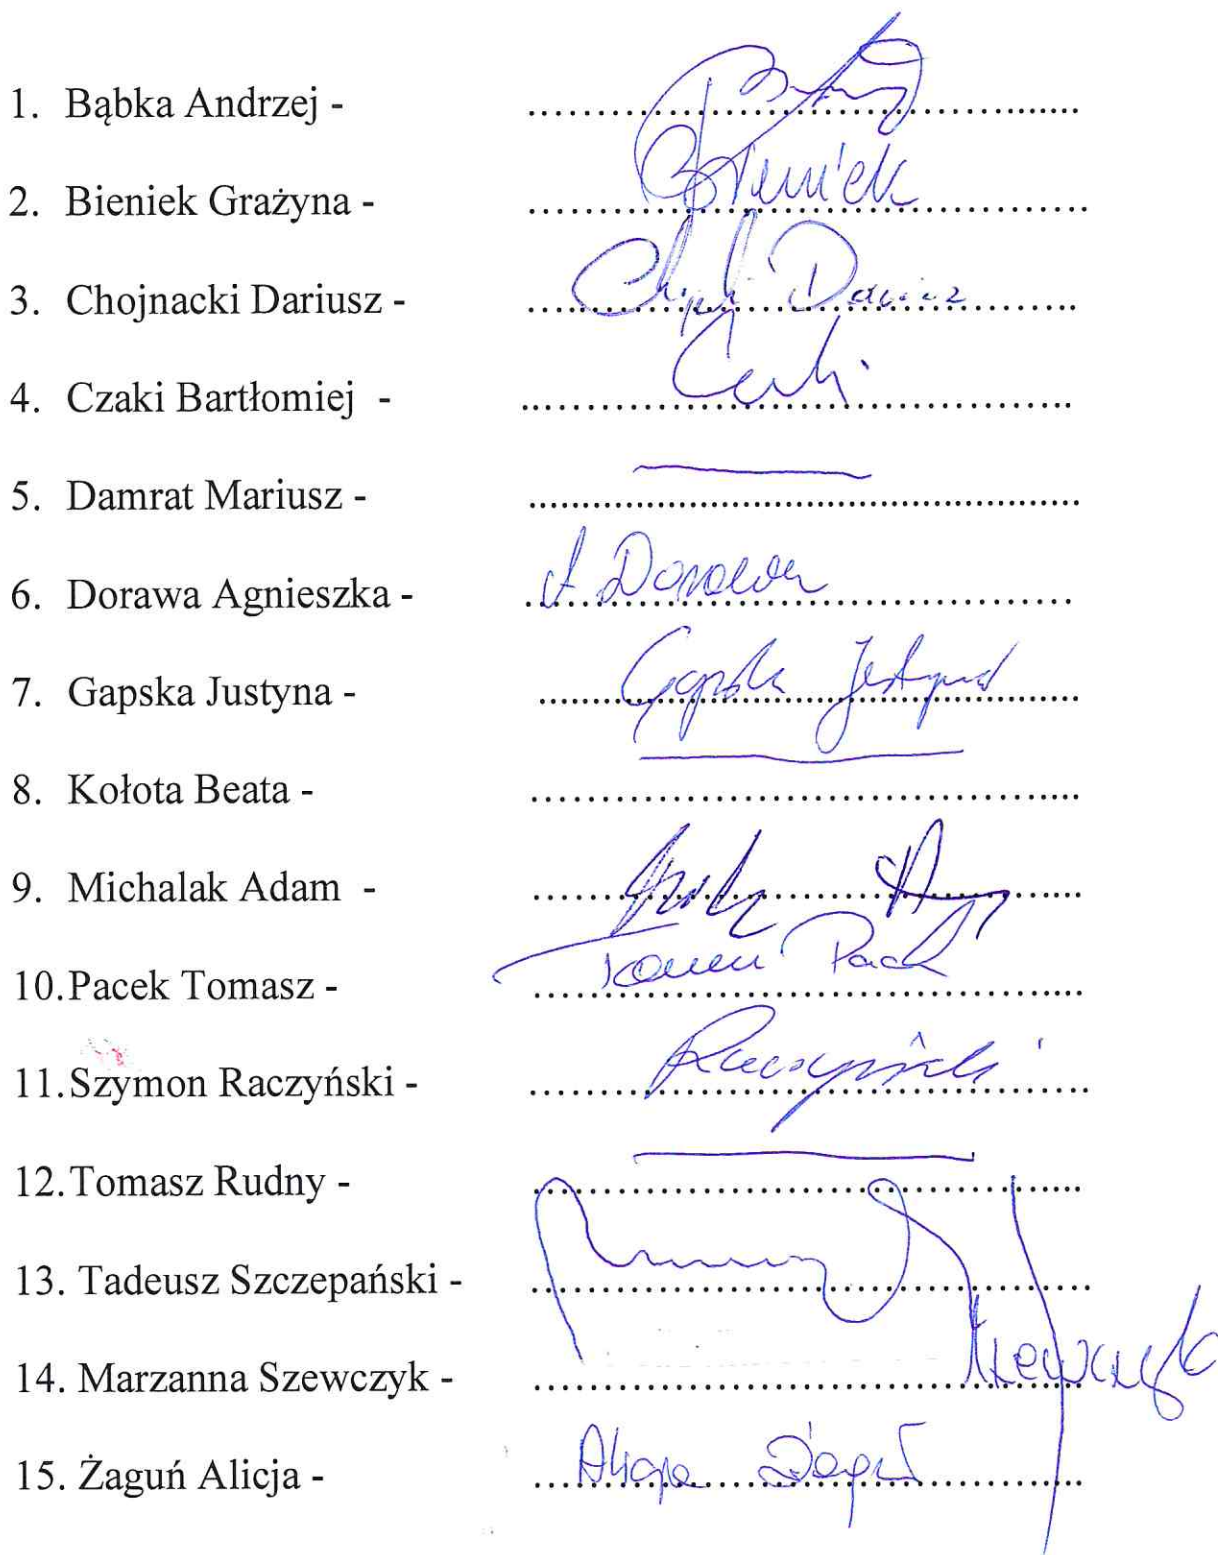 1. Bąbka Andrzej - ........................................
2. Bieniek Grażyna - ........................................ Bieniek
3. Chojnacki Dariusz - ........................................ Dariusz
4. Czaki Bartłomiej - ........................................ Czaki
5. Damrat Mariusz - ........................................
6. Dorawa Agnieszka - ........................................ A. Dorawa
7. Gapska Justyna - ........................................ Gapska Justyna
8. Kołota Beata - ........................................
9. Michalak Adam - ........................................
10. Pacek Tomasz - ........................................ Tomasz Pacek
11. Szymon Raczyński - ........................................ Raczyński
12. Tomasz Rudny - ........................................
13. Tadeusz Szczepański - ........................................
14. Marzanna Szewczyk - ........................................ Szewczyk
15. Żaguń Alicja - ........................................ Alicja Żaguń